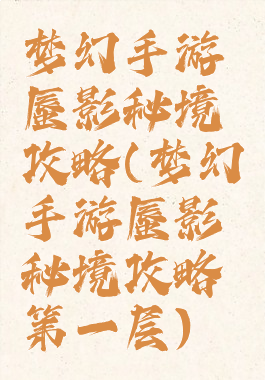 梦幻手游
蜃影秘境
攻略(梦幻
手游蜃影
秘境攻略
第一层)